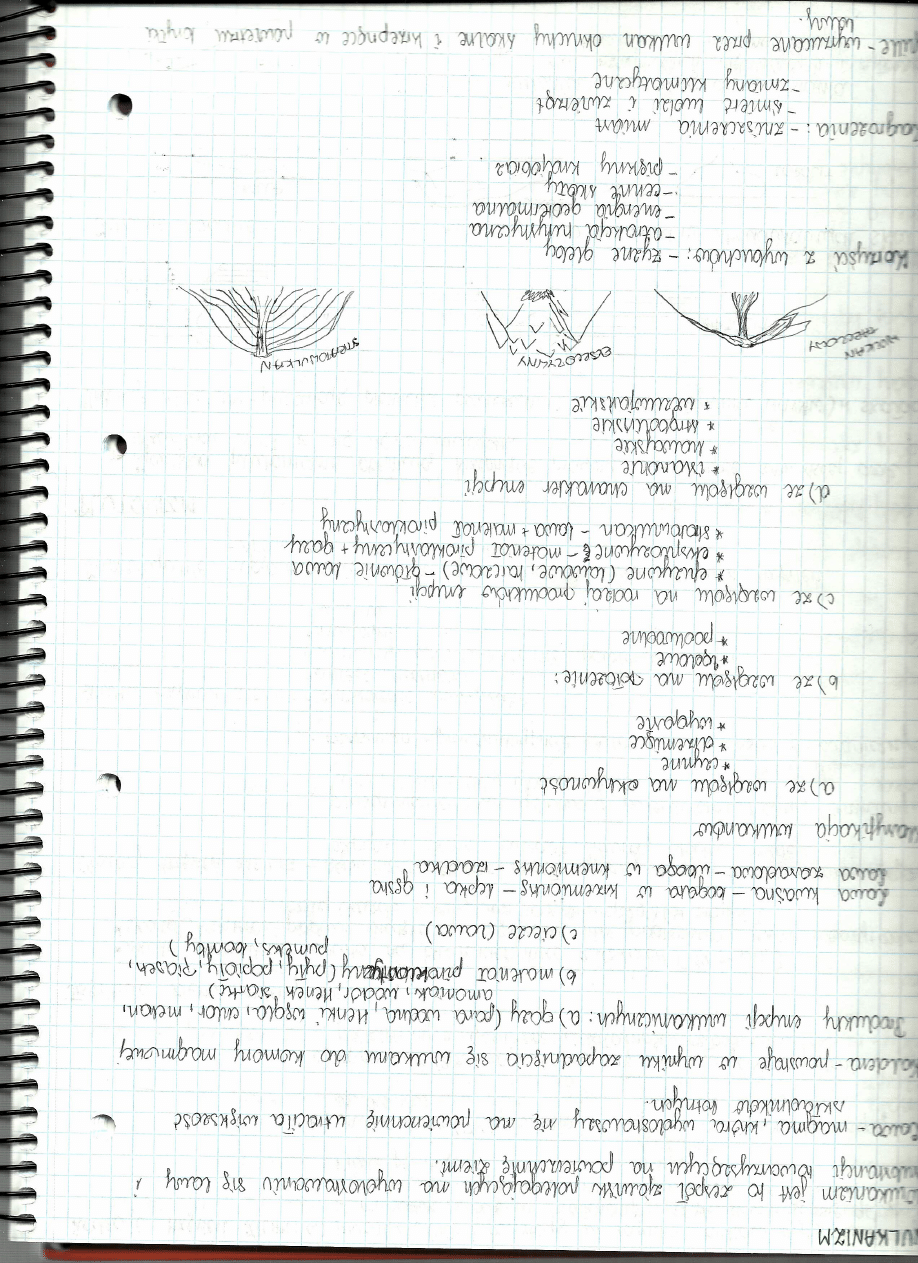 WULKANIZM
Wulkanizm jest to zespół zjawisk polegających na wydostawaniu się lawy i
substancji towarzyszących na powierzchnię ziemi.
Lawa - magma, która wydostawszy się na powierzchnię utraciła większość
składników lotnych.
Kaldera - powstaje w wyniku zapadnięcia się wulkanu do komory magmowej
Produkty erupcji wulkanicznych: a) gazy (para wodna, tlenki węgla, chlor, metan,
amoniak, wodór, tlenek siarki)
b) materiał piroklastyczny (pyły, popioły, piasek,
pumeks, bomby)
c) ciecze (lawa)
Lawa kwaśna - bogata w krzemionkę - lepka i gęsta
Lawa zasadowa - uboga w krzemionkę - rzadka
Klasyfikacja wulkanów
a) ze względu na aktywność
* czynne
* drzemiące
* wygasłe
b) ze względu na położenie:
* lądowe
* podwodne
c) ze względu na rodzaj produktów erupcji
* efuzywne (lawowe, tarczowe) - głównie lawa
* eksplozywne - materiał piroklastyczny + gazy
* stratowulkan - lawa + materiał piroklastyczny
d) ze względu na charakter erupcji
* islandzkie
* hawajskie
* strombolińskie
* wezuwiańskie
WULKAN TARCZOWY
EKSPLOZYWNY
STRATOWULKAN
Korzyści z wybuchów: - żyzne gleby
- atrakcja turystyczna
- energia geotermalna
- cenne skały
- piękny krajobraz
Zagrożenia: - zniszczenia miast
- śmierć ludzi i zwierząt
- zmiany klimatyczne
- wyrzucane przez wulkan okruchy skalne i krzepnące w powietrzu krople
lawy.